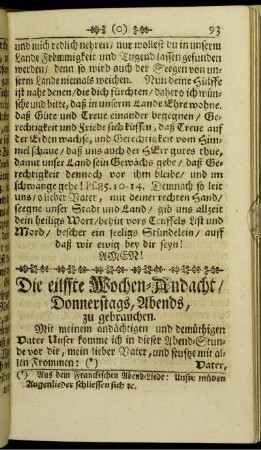 (o) 93
und mich redlich nehren/ nur wollest du in unserm
Lande Frömmigkeit und Tugend lassen gefunden
werden/ denn so wird auch der Seegen von un-
serm Lande niemals weichen. Nun deine Hülffe
ist nahe denen/ die dich fürchten/ dahero ich wün-
sche und bitte, daß in unserm Lande Ehre wohne.
daß Güte und Treue einander begegnen/ Ge-
rechtigkeit und Friede sich küssen, daß Treue auf
der Erden wachse, und Gerechtigkeit vom Him-
mel schaue/ daß uns auch der HErr gutes thue,
damit unser Land sein Gewächs gebe/ daß Ge-
rechtigkeit dennoch vor ihm bleibe/ und im
schwange gehe! Ps. 85. 10-14. Demnach so leit
uns/ o lieber Vater, mit deiner rechten Hand/
seegne unser Stadt und Land/ gib uns allzeit
dein heiligs Wort/ behüt vors Teuffels List und
Mord/ bescher ein seeligs Stündelein/ auff
daß wir ewig bey dir seyn!
AMEN!
Die eilffte Wochen-Andacht/
Donnerstags, Abends,
zu gebrauchen.
Mit meinem andächtigen und demüthigen
Vater Unser komme ich in dieser Abend-Stun-
de vor dir, mein lieber Vater, und seufze mit al-
len Frommen: (*) Vater,
(*) Aus dem Franckischen Abend-Liede: Unsre müden
Augenlieder schliessen sich ꝛc.